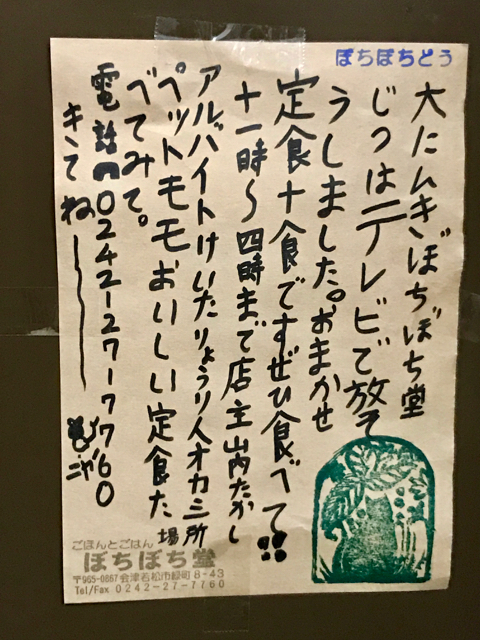 ぼちぼちどう
大にんきぼちぼち堂
じつはテレビで放そ
うしました。おまかせ
定食十食ですぜひ食べて!!
十一時〜四時まで店主山内たかし
アルバイトけいたりょうり人オカミ
ペットモモおいしい定食た
べてみて。
電話☎0242-27-7760
きてね
場所
ごほんとごはん
ぼちぼち堂
〒965-0867 会津若松市緑町8-43
Tel/Fax 0242-27-7760